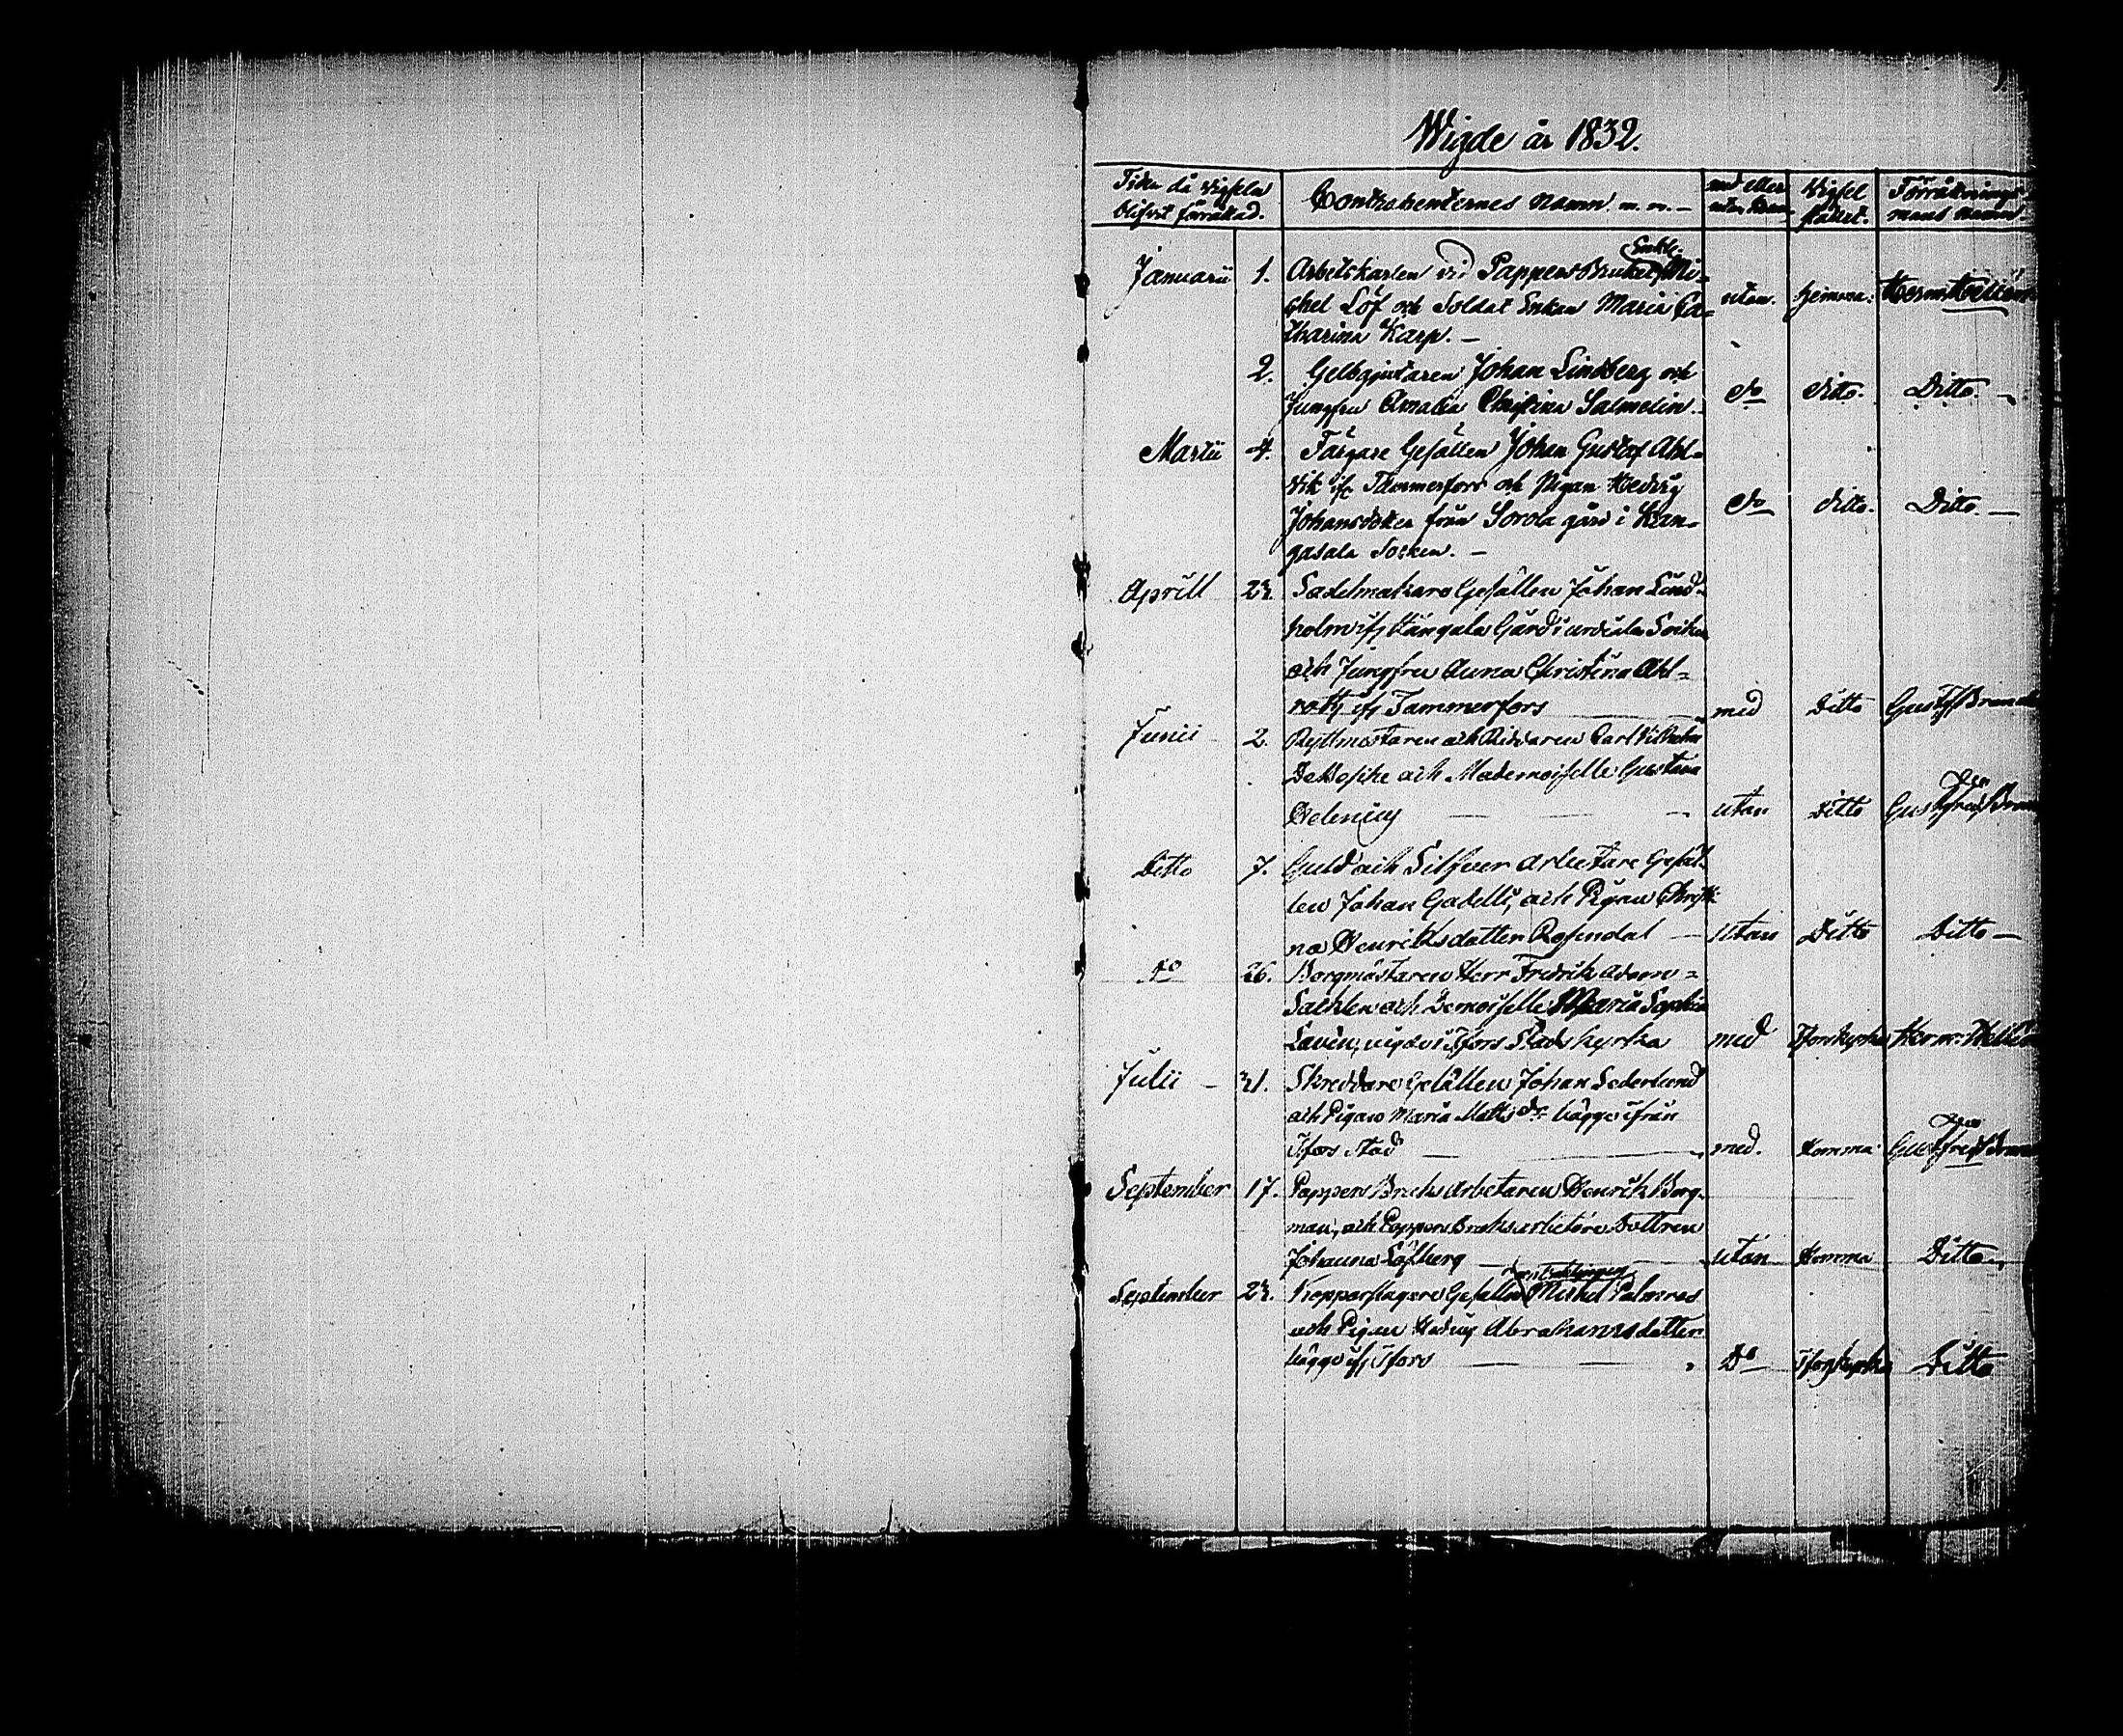 Wigde år 1832.
Tiden då wigseln blifvit förrättad. Contrahenternes namn m. m. — med eller utan Wigsel stället. Förrättnings mans namn
Enkl.
Januarii 1. Arbetskarlen vid Pappersbruket Mi-
chel Löf och Soldat Enkan Maria Ca- utan. hemma.
tharina Karp. —
2. Gelbgjutaren Johan Lindberg och
Jungfru Amalia Christina Salmelin. do ditto. Ditto. —
Martii 4. Färgare Gesällen Johan Gustaf Ahl-
vik ifr Tammerfors och Pigan Hedvig
Johansdotter från Sorola gård i Kan- do ditto. Ditto. —
gasala Socken. —
Aprill 23. Sadelmakare Gesällen Johan Lind-
holm ifr Gård i urdiala Socken
och Jungfru Anna Christina Ahl-
roth ifr Tammerfors med Ditto Gustaf
Junii 2. Ryttmästaren och Riddaren Carl Vilhelm
och Mademoiselle Gustava
Helenius — — utan Ditto
Ditto 7. Guld och Silfver arbetare Gesäl-
len Johan Gadelli, och Pigan Christi-
na Henriksdotter Rosendal — utan Ditto Ditto —
do 26. Borgmästaren Herr Fredrik Adam
och Demoiselle Maria Sophia
Lavén, vigde i Tfors Stads kyrka med Tfors kyrka
Julii — 31. Skreddare Gesällen Johan Sederlund
och Pigan Maria Matts dr. bägge ifrån
Tfors Stad — med. Hemma
September 17. Pappers Bruks Arbetaren Henrik Berg-
man, och Pappers Bruks arbetare Dottren
Johanna Löfberg — utan Hemma Ditto
September 23. Kopparslagare Gesällen Michel Palmroos
och Pigan Hedvig Abrahamsdotter
bägge ifr Tfors — — Do Tfors kyrka Ditto